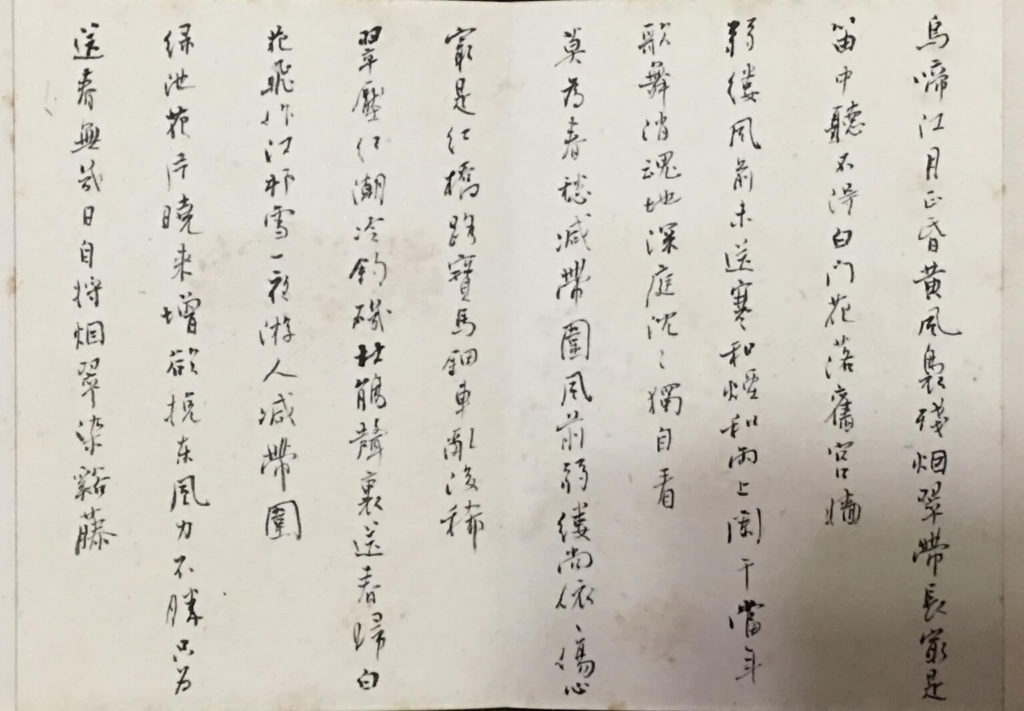 烏啼江月正昏黃風裊殘烟翠帶長最是
笛中聽不得白門花落舊宮墻
弱縷風前未送寒和烟和雨上闌干當年
歌舞消魂地深庭沈〻獨自看
莫為春愁減帶圍風前弱縷尚依〻傷心
最是紅橋路寶馬鈿車亂後稀
翠壓紅潮冷釣磯杜鵑聲裏送春歸白
花飛作江邨雪一夜游人減帶圍
绿池花片曉来增欲挽东風力不勝只为
送春無幾日自将烟翠染谿藤